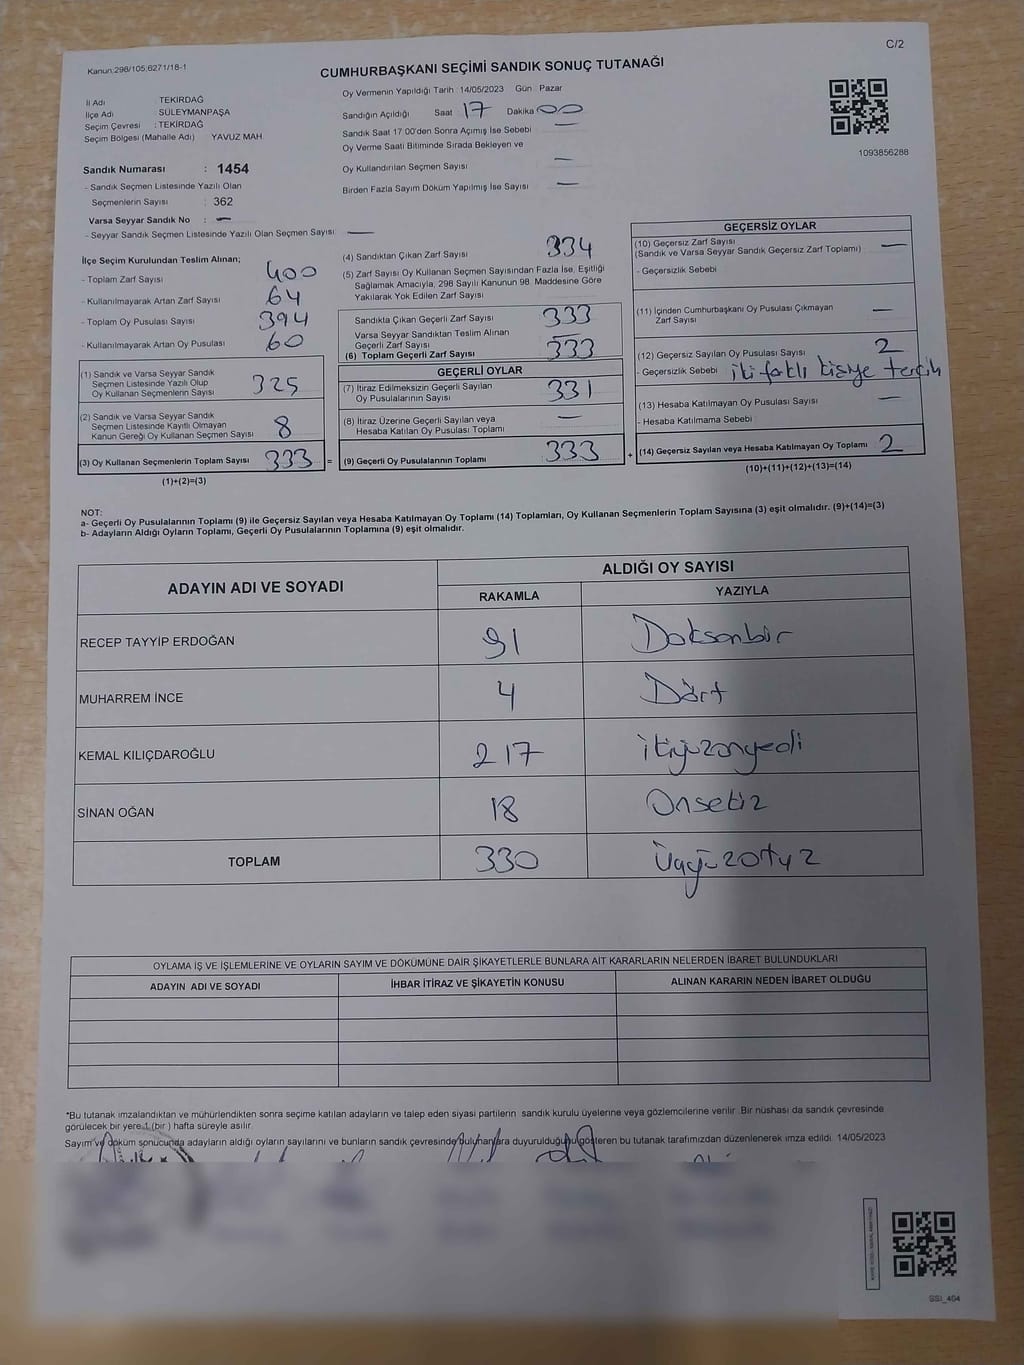 C/2
Kanun:298/105;6271/18-1
CUMHURBAŞKANI SEÇİMİ SANDIK SONUÇ TUTANAĞI
İl Adı : TEKİRDAĞ
İlçe Adı : SÜLEYMANPAŞA
Seçim Çevresi : TEKİRDAĞ
Seçim Bölgesi (Mahalle Adı) YAVUZ MAH
Sandık Numarası : 1454
- Sandık Seçmen Listesinde Yazılı Olan
Seçmenlerin Sayısı : 362
Varsa Seyyar Sandık No : —
- Seyyar Sandık Seçmen Listesinde Yazılı Olan Seçmen Sayısı —
Oy Vermenin Yapıldığı Tarih 14/05/2023 Gün Pazar
Sandığın Açıldığı Saat 17 Dakika 00
Sandık Saat 17 00'den Sonra Açımış İse Sebebi —
Oy Verme Saati Bitiminde Sırada Bekleyen ve
Oy Kullandırılan Seçmen Sayısı —
Birden Fazla Sayım Döküm Yapılmış İse Sayısı —
1093856288
İlçe Seçim Kurulundan Teslim Alınan;
- Toplam Zarf Sayısı 400
- Kullanılmayarak Artan Zarf Sayısı 64
- Toplam Oy Pusulası Sayısı 394
- Kullanılmayarak Artan Oy Pusulası 60
(1) Sandık ve Varsa Seyyar Sandık
Seçmen Listesinde Yazılı Olup
Oy Kullanan Seçmenlerin Sayısı 325
(2) Sandık ve Varsa Seyyar Sandık
Seçmen Listesinde Kayıtlı Olmayan
Kanun Gereği Oy Kullanan Seçmen Sayısı 8
(3) Oy Kullanan Seçmenlerin Toplam Sayısı 333 =
(1)+(2)=(3)
(4) Sandıktan Çıkan Zarf Sayısı 334
(5) Zarf Sayısı Oy Kullanan Seçmen Sayısından Fazla İse, Eşitliği
Sağlamak Amacıyla, 298 Sayılı Kanunun 98. Maddesine Göre
Yakılarak Yok Edilen Zarf Sayısı
Sandıkta Çıkan Geçerli Zarf Sayısı 333
Varsa Seyyar Sandıktan Teslim Alınan
Geçerli Zarf Sayısı —
(6) Toplam Geçerli Zarf Sayısı 333
GEÇERLİ OYLAR
(7) İtiraz Edilmeksizin Geçerli Sayılan
Oy Pusulalarının Sayısı 331
(8) İtiraz Üzerine Geçerli Sayılan veya
Hesaba Katılan Oy Pusulası Toplamı —
(9) Geçerli Oy Pusulalarının Toplamı 333 +
GEÇERSİZ OYLAR
(10) Geçersiz Zarf Sayısı —
(Sandık ve Varsa Seyyar Sandık Geçersiz Zarf Toplamı)
- Geçersizlik Sebebi
(11) İçinden Cumhurbaşkanı Oy Pusulası Çıkmayan
Zarf Sayısı —
(12) Geçersiz Sayılan Oy Pusulası Sayısı 2
- Geçersizlik Sebebi iki farklı kişiye tercih
(13) Hesaba Katılmayan Oy Pusulası Sayısı —
- Hesaba Katılmama Sebebi
(14) Geçersiz Sayılan veya Hesaba Katılmayan Oy Toplamı 2
(10)+(11)+(12)+(13)=(14)
NOT:
a- Geçerli Oy Pusulalarının Toplamı (9) ile Geçersiz Sayılan veya Hesaba Katılmayan Oy Toplamı (14) Toplamları, Oy Kullanan Seçmenlerin Toplam Sayısına (3) eşit olmalıdır. (9)+(14)=(3)
b- Adayların Aldığı Oyların Toplamı, Geçerli Oy Pusulalarının Toplamına (9) eşit olmalıdır.
ADAYIN ADI VE SOYADI
ALDIĞI OY SAYISI
RAKAMLA YAZIYLA
RECEP TAYYİP ERDOĞAN 91 Doksanbir
MUHARREM İNCE 4 Dört
KEMAL KILIÇDAROĞLU 217 ikiyüzonyedi
SİNAN OĞAN 18 Onsekiz
TOPLAM 330 Üçyüzotuz
OYLAMA İŞ VE İŞLEMLERİNE VE OYLARIN SAYIM VE DÖKÜMÜNE DAİR ŞİKAYETLERLE BUNLARA AİT KARARLARIN NELERDEN İBARET BULUNDUKLARI
ADAYIN ADI VE SOYADI İHBAR İTİRAZ VE ŞİKAYETİN KONUSU ALINAN KARARIN NEDEN İBARET OLDUĞU
*Bu tutanak imzalandıktan ve mühürlendikten sonra seçime katılan adayların ve talep eden siyasi partilerin sandık kurulu üyelerine veya gözlemcilerine verilir .Bir nüshası da sandık çevresinde
görülecek bir yere 1 (bir ) hafta süreyle asılır.
Sayım ve döküm sonucunda adayların aldığı oyların sayılarını ve bunların sandık çevresinde bulunanlara duyurulduğunu gösteren bu tutanak tarafımızdan düzenlenerek imza edildi. 14/05/2023
SSI_404